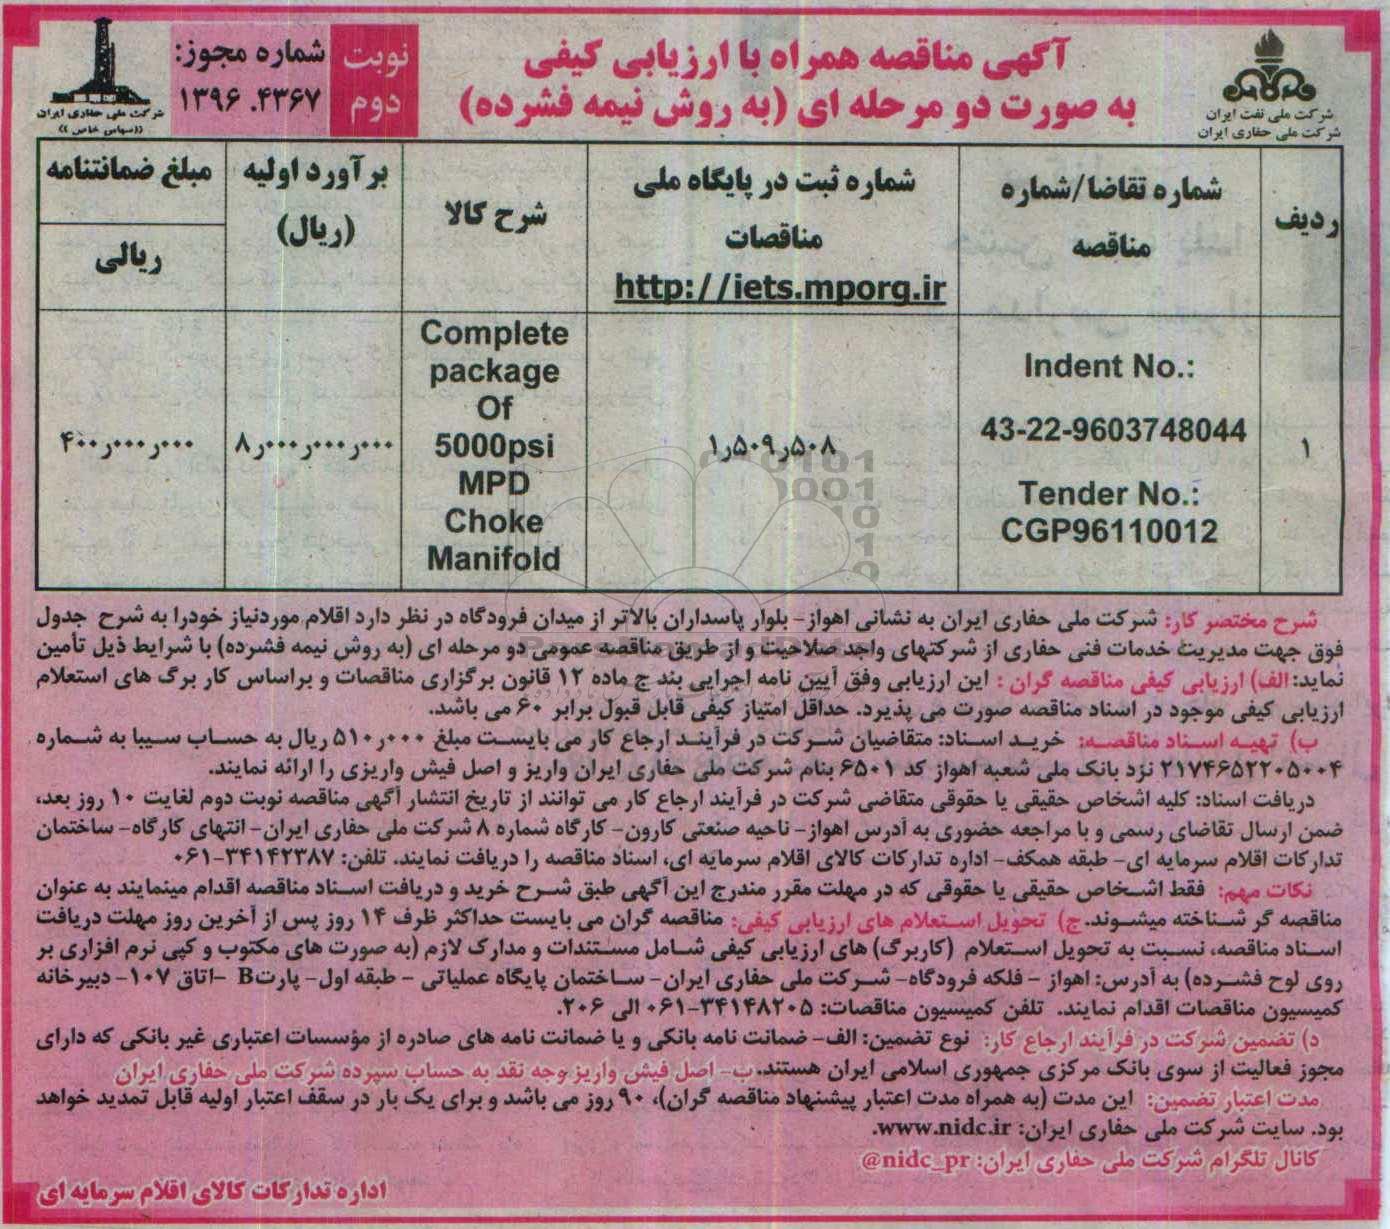 آگهی مناقصه همراه با ارزیابی کیفی
به صورت دو مرحله ای (به روش نیمه فشرده)
شرکت ملی نفت ایران
شرکت ملی حفاری ایران
نوبت دوم
شماره مجوز:
۱۳۹۶.۴۳۶۷
شرکت ملی حفاری ایران
((سهامی خاص))
ردیف
شماره تقاضا/شماره مناقصه
شماره ثبت در پایگاه ملی مناقصات
http://iets.mporg.ir
شرح کالا
برآورد اولیه (ریال)
مبلغ ضمانتنامه
ریالی
۱
Indent No.:
43-22-9603748044
Tender No.:
CGP96110012
۱ر۵۰۹ر۵۰۸
Complete
package
Of
5000psi
MPD
Choke
Manifold
۸ر۰۰۰ر۰۰۰ر۰۰۰
۴۰۰ر۰۰۰ر۰۰۰
شرح مختصر کار: شرکت ملی حفاری ایران به نشانی اهواز- بلوار پاسداران بالاتر از میدان فرودگاه در نظر دارد اقلام موردنیاز خودرا به شرح جدول
فوق جهت مدیریت خدمات فنی حفاری از شرکتهای واجد صلاحیت و از طریق مناقصه عمومی دو مرحله ای (به روش نیمه فشرده) با شرایط ذیل تأمین
نماید: الف) ارزیابی کیفی مناقصه گران : این ارزیابی وفق آیین نامه اجرایی بند ج ماده ۱۲ قانون برگزاری مناقصات و براساس کار برگ های استعلام
ارزیابی کیفی موجود در اسناد مناقصه صورت می پذیرد. حداقل امتیاز کیفی قابل قبول برابر ۶۰ می باشد.
ب) تهیه اسناد مناقصه: خرید اسناد: متقاضیان شرکت در فرآیند ارجاع کار می بایست مبلغ ۵۱۰ر۰۰۰ ریال به حساب سیبا به شماره
۲۱۷۴۶۵۲۲۰۵۰۰۴ نزد بانک ملی شعبه اهواز کد ۶۵۰۱ بنام شرکت ملی حفاری ایران واریز و اصل فیش واریزی را ارائه نمایند.
دریافت اسناد: کلیه اشخاص حقیقی یا حقوقی متقاضی شرکت در فرآیند ارجاع کار می توانند از تاریخ انتشار آگهی مناقصه نوبت دوم لغایت ۱۰ روز بعد،
ضمن ارسال تقاضای رسمی و با مراجعه حضوری به آدرس اهواز- ناحیه صنعتی کارون- کارگاه شماره ۸ شرکت ملی حفاری ایران- انتهای کارگاه- ساختمان
تدارکات اقلام سرمایه ای- طبقه همکف- اداره تدارکات کالای اقلام سرمایه ای، اسناد مناقصه را دریافت نمایند. تلفن: ۳۴۱۴۲۳۸۷-۰۶۱
نکات مهم: فقط اشخاص حقیقی یا حقوقی که در مهلت مقرر مندرج این آگهی طبق شرح خرید و دریافت اسناد مناقصه اقدام مینمایند به عنوان
مناقصه گر شناخته میشوند. ج) تحویل استعلام های ارزیابی کیفی: مناقصه گران می بایست حداکثر ظرف ۱۴ روز پس از آخرین روز مهلت دریافت
اسناد مناقصه، نسبت به تحویل استعلام (کاربرگ) های ارزیابی کیفی شامل مستندات و مدارک لازم (به صورت های مکتوب و کپی نرم افزاری بر
روی لوح فشرده) به آدرس: اهواز - فلکه فرودگاه- شرکت ملی حفاری ایران- ساختمان پایگاه عملیاتی - طبقه اول- پارت B -اتاق ۱۰۷- دبیرخانه
کمیسیون مناقصات اقدام نمایند. تلفن کمیسیون مناقصات: ۳۴۱۴۸۲۰۵-۰۶۱ الی ۲۰۶.
د) تضمین شرکت در فرآیند ارجاع کار: نوع تضمین: الف- ضمانت نامه بانکی و یا ضمانت نامه های صادره از مؤسسات اعتباری غیر بانکی که دارای
مجوز فعالیت از سوی بانک مرکزی جمهوری اسلامی ایران هستند. ب- اصل فیش واریز وجه نقد به حساب سپرده شرکت ملی حفاری ایران
مدت اعتبار تضمین: این مدت (به همراه مدت اعتبار پیشنهاد مناقصه گران)، ۹۰ روز می باشد و برای یک بار در سقف اعتبار اولیه قابل تمدید خواهد
بود. سایت شرکت ملی حفاری ایران: www.nidc.ir.
کانال تلگرام شرکت ملی حفاری ایران: @nidc_pr
اداره تدارکات کالای اقلام سرمایه ای